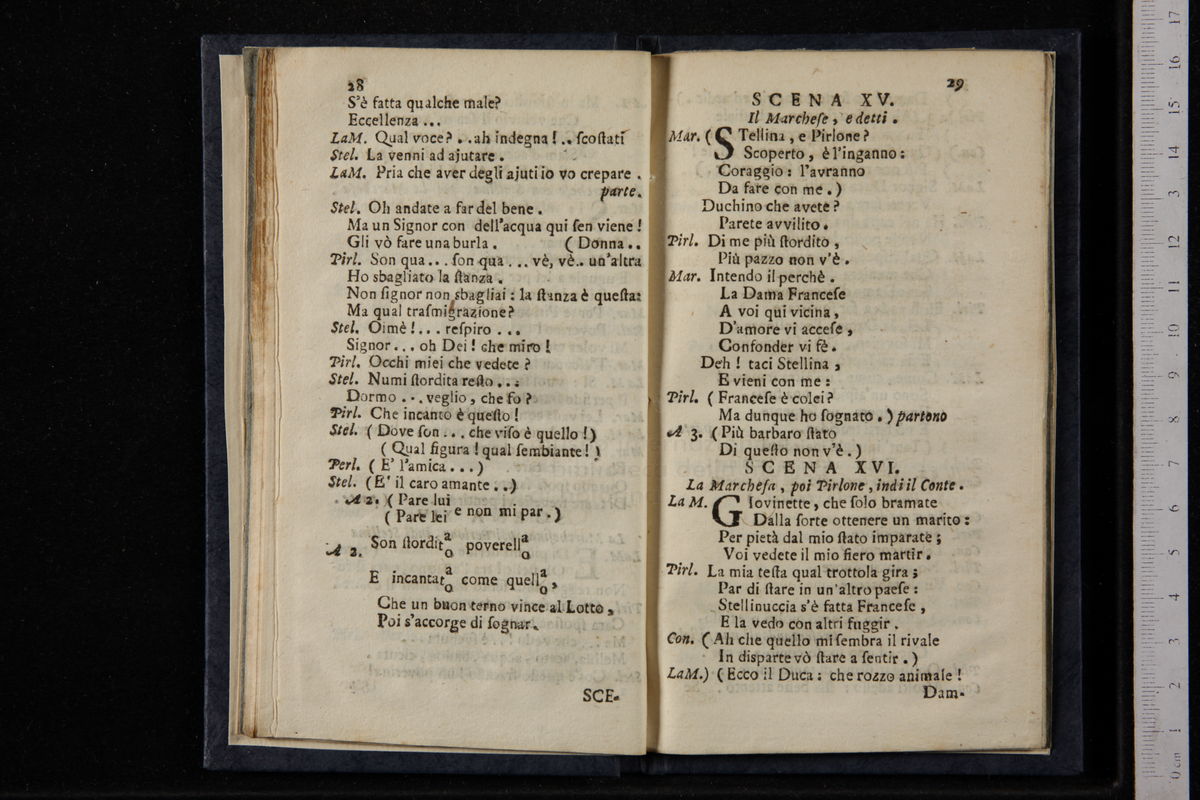 28
S'è fatta qualche male?
Eccellenza ...
LaM. Qual voce? . .ah indegna! .. ſcoſtati
Stel. La venni ad ajutare .
LaM. Pria che aver degli ajuti io vo crepare .
parte.
Stel. Oh andate a far del bene .
Ma un Signor con dell'acqua qui ſen viene!
Gli vò fare una burla . ( Donna ..
Pirl. Son qua... ſon qua ... vè, vè.. un'altra
Ho sbagliato la ſtanza .
Non ſignor non sbagliai : la ſtanza è queſta:
Ma qual traſmigrazione?
Stel. Oimè !... reſpiro ...
Signor... oh Dei! che miro!
Pirl. Occhi miei che vedete ?
Stel. Numi ſtordita reſto ...
Dormo ... veglio, che fo ?
Pirl. Che incanto è queſto !
Stel. ( Dove ſon ... che viſo è quello !)
( Qual figura ! qual ſembiante! )
Perl. ( E' l'amica ...)
Stel. (E' il caro amante ..)
A 2. ( Pare lui
( Pare lei e non mi par .)
A 2. Son ſtordit a o poverell a o
E incantat a o come quell a o ,
Che un buon terno vince al Lotto ,
Poi s'accorge di ſognar.
SCE-
29
SCENA XV.
Il Marcheſe, e detti .
Mar. ( STellina, e Pirlone?
Scoperto, è l'inganno:
Coraggio: l'avranno
Da fare con me .)
Duchino che avete?
Parete avvilito.
Pirl. Di me più ſtordito ,
Più pazzo non v'è .
Mar. Intendo il perchè .
La Dama Franceſe
A voi qui vicina,
D'amore vi acceſe ,
Confonder vi fè.
Deh ! taci Stellina ,
E vieni con me :
Pirl. ( Franceſe è colei?
Ma dunque ho ſognato .) partono
A 3. (Più barbaro ſtato
Di queſto non v'è .)
SCENA XVI.
La Marcheſa, poi Pirlone, indi il Conte .
La M. GIovinette, che ſolo bramate
Dalla ſorte ottenere un marito :
Per pietà dal mio ſtato imparate ;
Voi vedete il mio fiero martir .
Pirl. La mia teſta qual trottola gira ;
Par di ſtare in un'altro paeſe :
Stellinuccia s'è fatta Franceſe ,
E la vedo con altri fuggir .
Con. ( Ah che quello mi ſembra il rivale
In disparte vò ſtare a ſentir .)
LaM.) (Ecco il Duca: che rozzo animale !
Dam-
0 cm 1 2 3 4 5 6 7 8 9 10 11 12 13 14 15 16 17